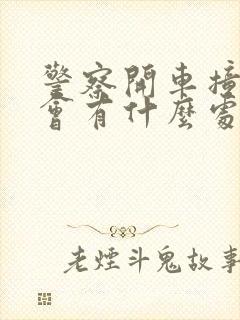 警察開車撞
會有什麼處
老煙斗鬼故事